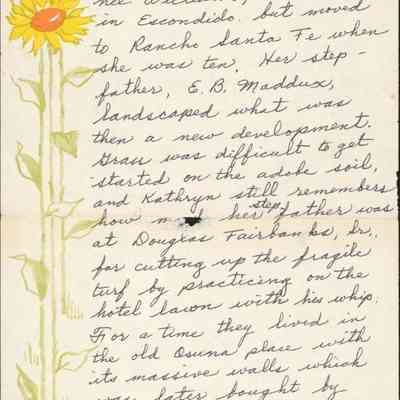 née
in Escondido. but moved
to Rancho Santa Fe when
she was ten. Her step-
father, E. B. Maddux,
landscaped what was
then a new development.
Grass was difficult to get
started on the adobe soil,
and Kathryn still remembers
how her stepfather was
at Douglas Fairbanks, Sr.,
for cutting up the fragile
turf by practicing on the
hotel lawn with his whip.
For a time they lived in
the old Osuna place with
its massive walls which
was later bought by